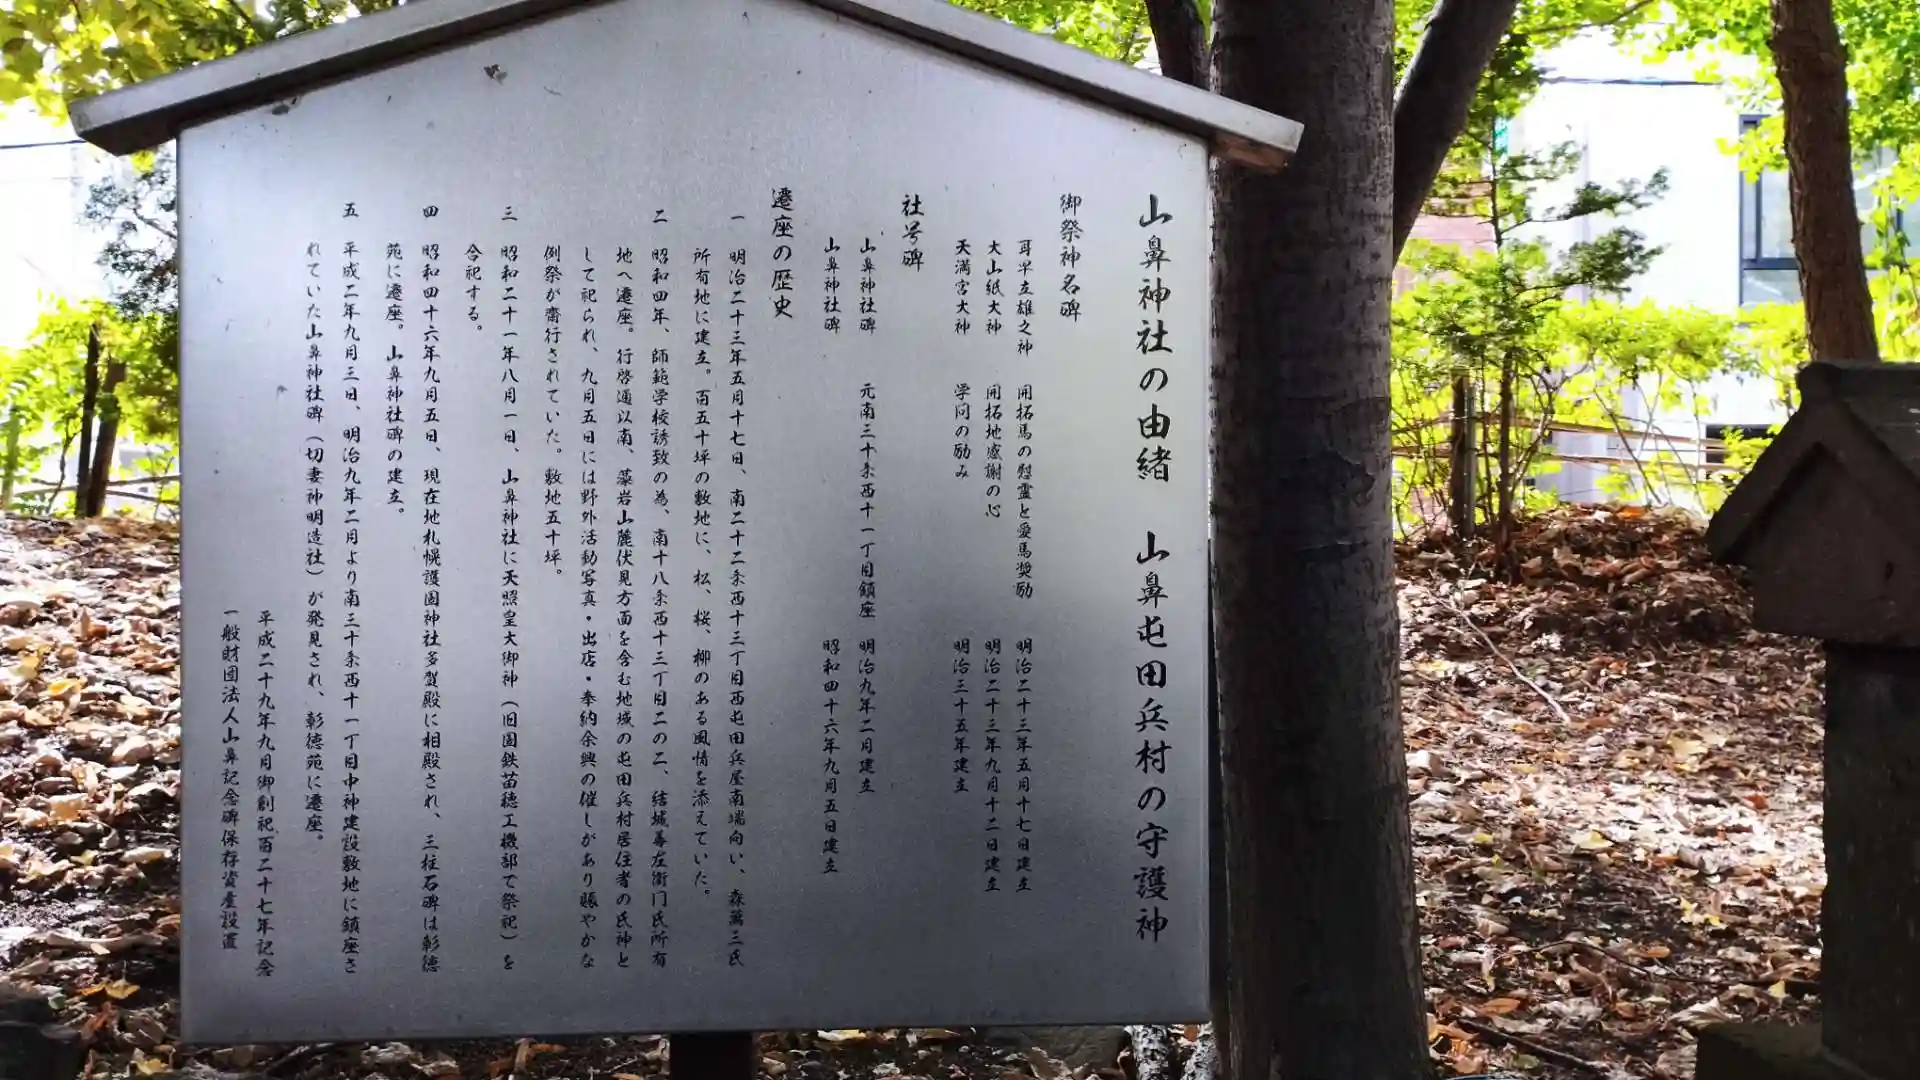 山鼻神社の由緒　山鼻屯田兵村の守護神
御祭神名碑
耳早立雄之神　開拓馬の慰霊と愛馬奨励　明治二十三年五月十七日建立
大山紙大神　開拓地感謝の心　明治二十三年九月十二日建立
天満宮大神　学問の励み　明治三十五年建立
社号碑
山鼻神社碑　元南三十条西十一丁目鎮座　明治九年二月建立
山鼻神社碑　昭和四十六年九月五日建立
遷座の歴史
一　明治二十三年五月十七日、南二十二条西十三丁目西屯田兵屋南端向い、森萬三氏
所有地に建立。百五十坪の敷地に、松、桜、柳のある風情を添えていた。
二　昭和四年、師範学校誘致の為、南十八条西十三丁目二の二、結城善左衛門氏所有
地へ遷座。行啓通以南、藻岩山麓伏見方面を含む地域の屯田兵村居住者の氏神と
して祀られ、九月五日には野外活動写真・出店・奉納余興の催しがあり賑やかな
例祭が斎行されていた。敷地五十坪。
三　昭和二十一年八月一日、山鼻神社に天照皇大御神（旧国鉄苗穂工機部で祭祀）を
合祀する。
四　昭和四十六年九月五日、現在地札幌護国神社多賀殿に相殿され、三柱石碑は彰徳
苑に遷座。山鼻神社碑の建立。
五　平成二年九月三日、明治九年二月より南三十条西十一丁目中神建設敷地に鎮座さ
れていた山鼻神社碑（切妻神明造社）が発見され、彰徳苑に遷座。
平成二十九年九月御創祀百二十七年記念
一般財団法人山鼻記念碑保存資産設置